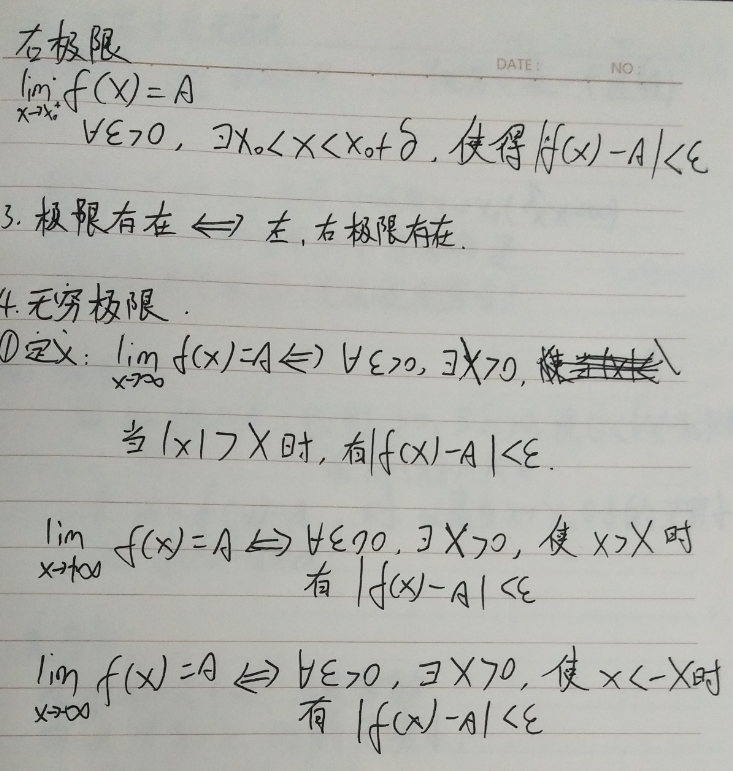 右极限
DATE: NO:
lim f(x) = A
x→x₀⁺
∀ε>0, ∃x₀<x<x₀+δ, 使得|f(x)-A|<ε
3. 极限存在 ⇔ 左,右极限存在.
4. 无穷极限.
①定义: lim f(x)=A ⇔ ∀ε>0, ∃X>0,
x→∞
当|x|>X时, 有|f(x)-A|<ε.
lim f(x)=A ⇔ ∀ε>0, ∃X>0, 使 x>X时
x→+∞
有 |f(x)-A|<ε
lim f(x)=A ⇔ ∀ε>0, ∃X>0, 使 x<-X时
x→-∞
有 |f(x)-A|<ε